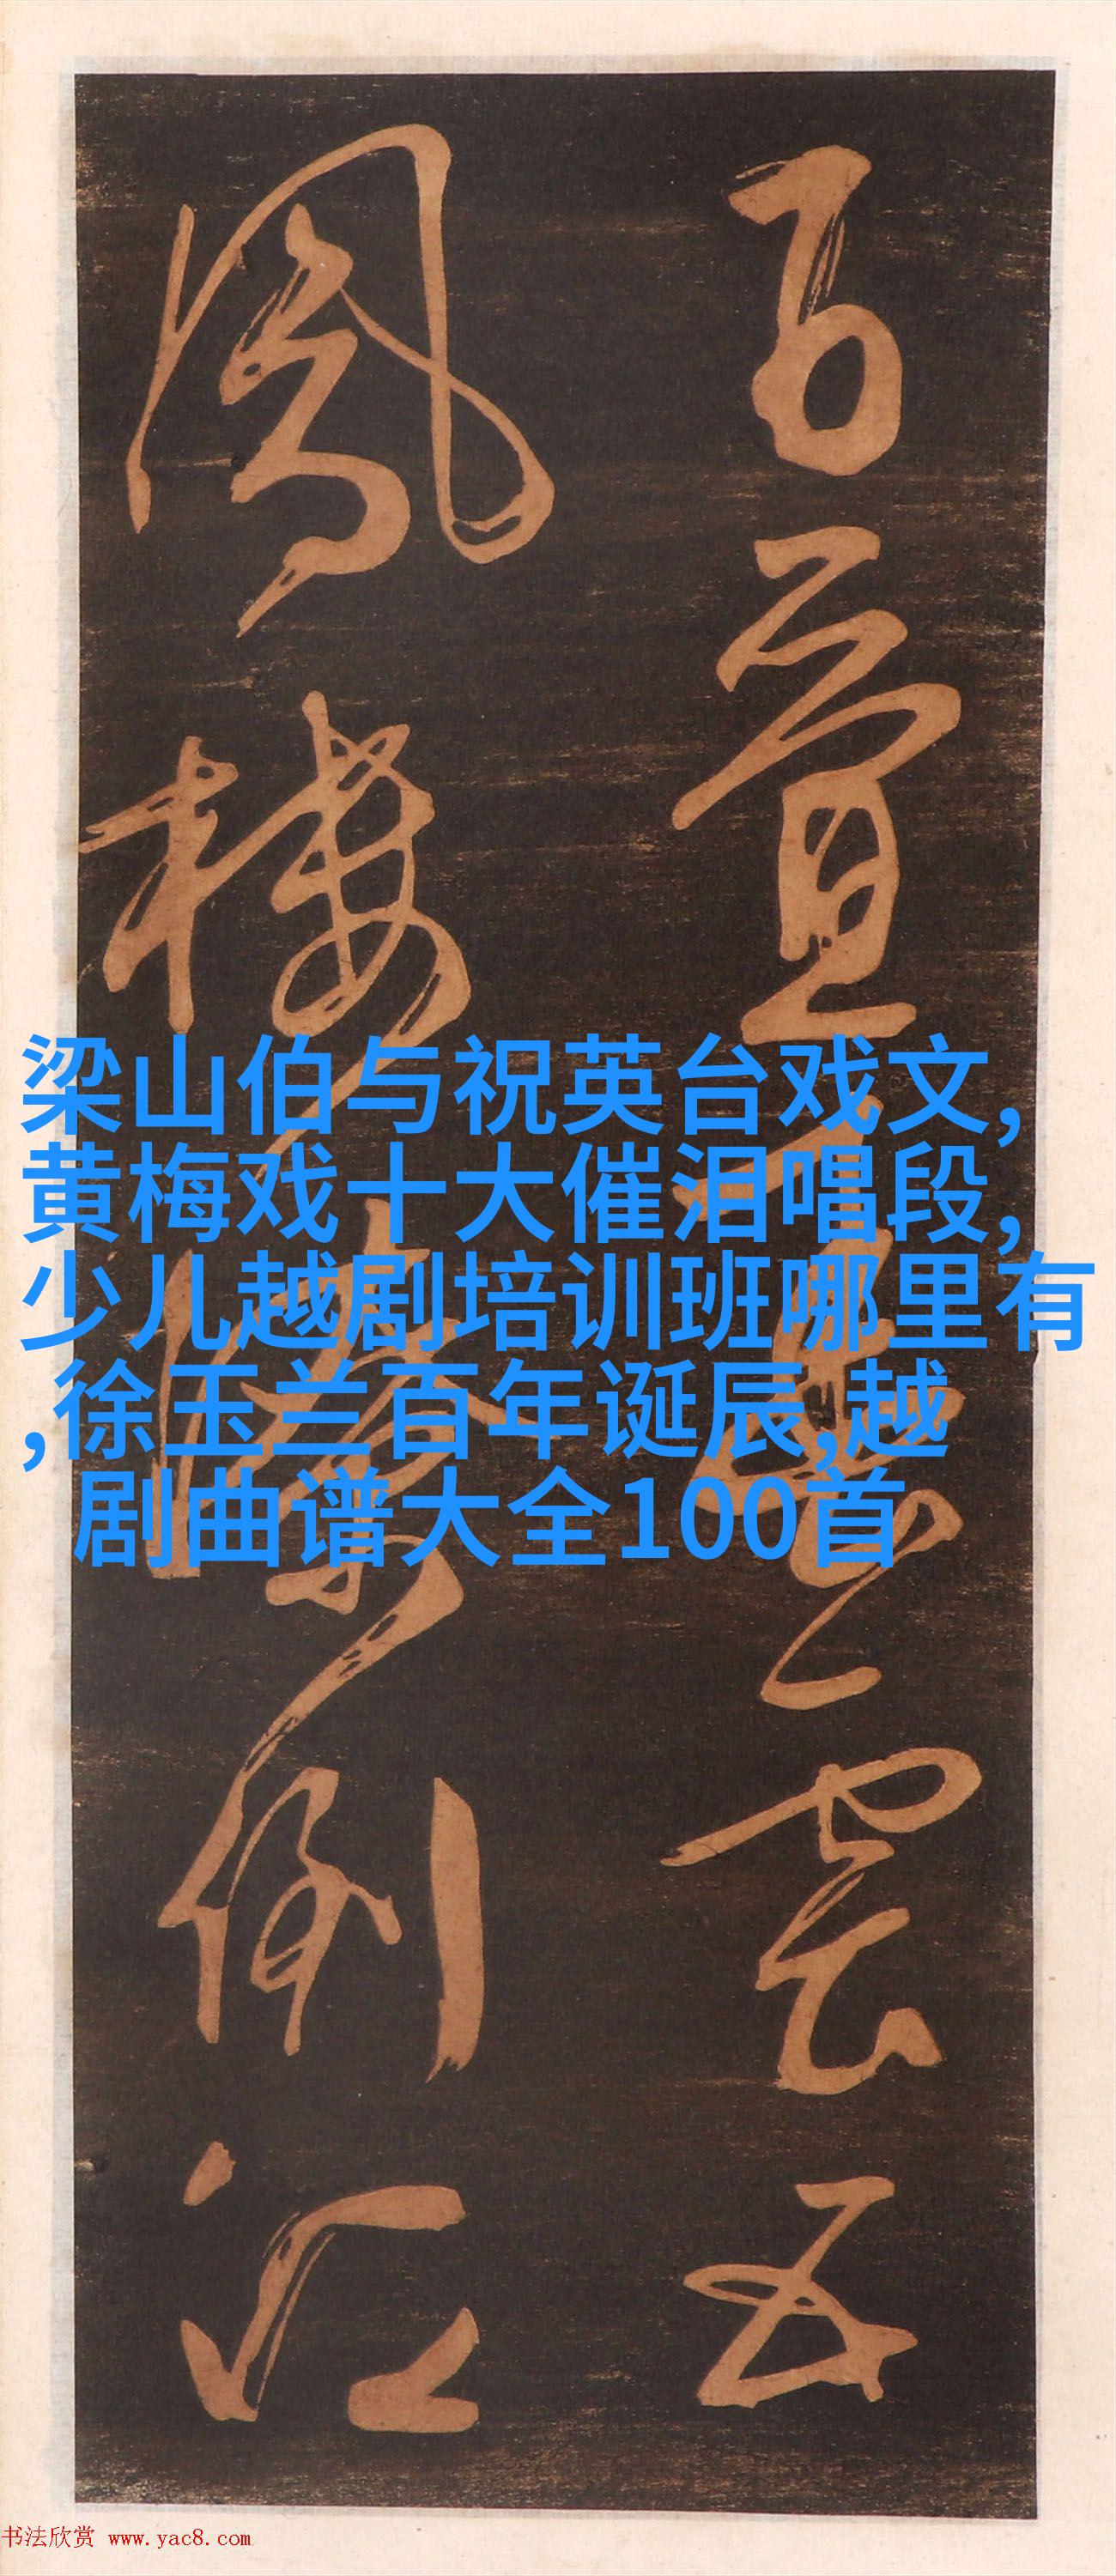 梁山伯与祝英台戏文,
黄梅戏十大催泪唱段,
少儿越剧培训班哪里有
,徐玉兰百年诞辰,越
剧曲谱大全100首
五
鳳樓倒江
书法欣赏 www.yac8.com